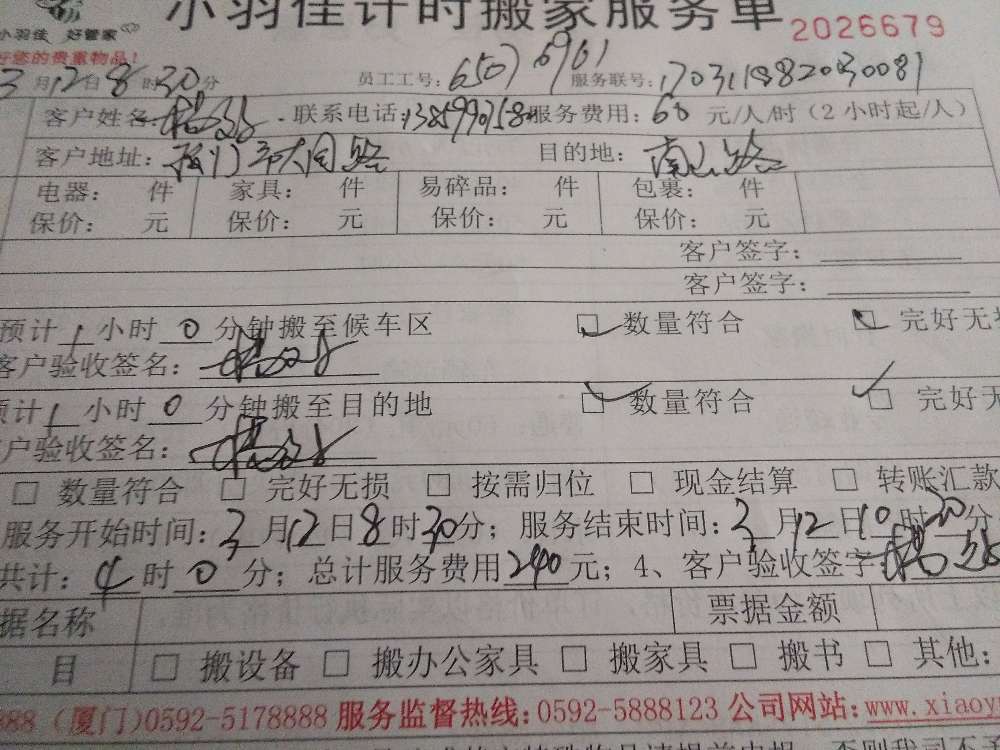 小羽佳计时搬家服务单 2026679
小羽佳 好管家
好您的贵重物品!
3月12日8时30分 员工工号: 服务联号:
客户姓名: 联系电话: 服务费用:60元/人/时(2小时起/人)
客户地址:厦门市大同路 目的地:南山路
电器: 件 家具: 件 易碎品: 件 包裹: 件
保价: 元 保价: 元 保价: 元 保价: 元
客户签字:
客户签字:
预计1小时0分钟搬至候车区 □数量符合 □完好无损
客户验收签名:
预计1小时0分钟搬至目的地 □数量符合 □完好无
客户验收签名:
□ 数量符合 □ 完好无损 □ 按需归位 □ 现金结算 □ 转账汇款
服务开始时间:3月12日8时30分; 服务结束时间:3月12日10时30分
共计:4时0分; 总计服务费用240元; 4、客户验收签字
据名称 票据金额
目 □ 搬设备 □ 搬办公家具 □ 搬家具 □ 搬书 □ 其他:
888 (厦门)0592-5178888 服务监督热线:0592-5888123 公司网站:www.xiaoy